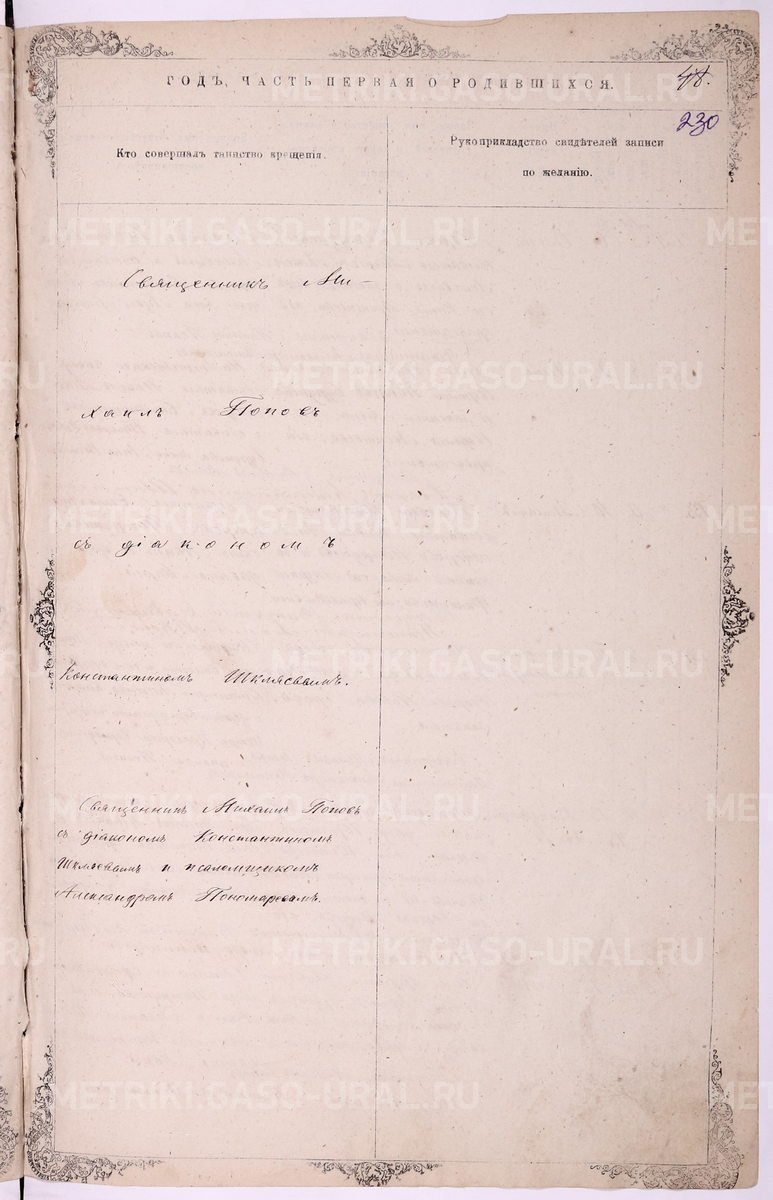 ГОДЪ, ЧАСТЬ ПЕРВАЯ О РОДИВШИХСЯ.
48.
230
Кто совершалъ таинство крещенія.
Рукоприкладство свидѣтелей записи
по желанію.
Священникъ Ми-
хаилъ Поповъ
съ діакономъ
Константиномъ
Священникъ Михаилъ Поповъ
съ діакономъ Константиномъ
и псаломщикомъ
Александромъ Пономаревымъ.
METRIKI.GASO-URAL.RU